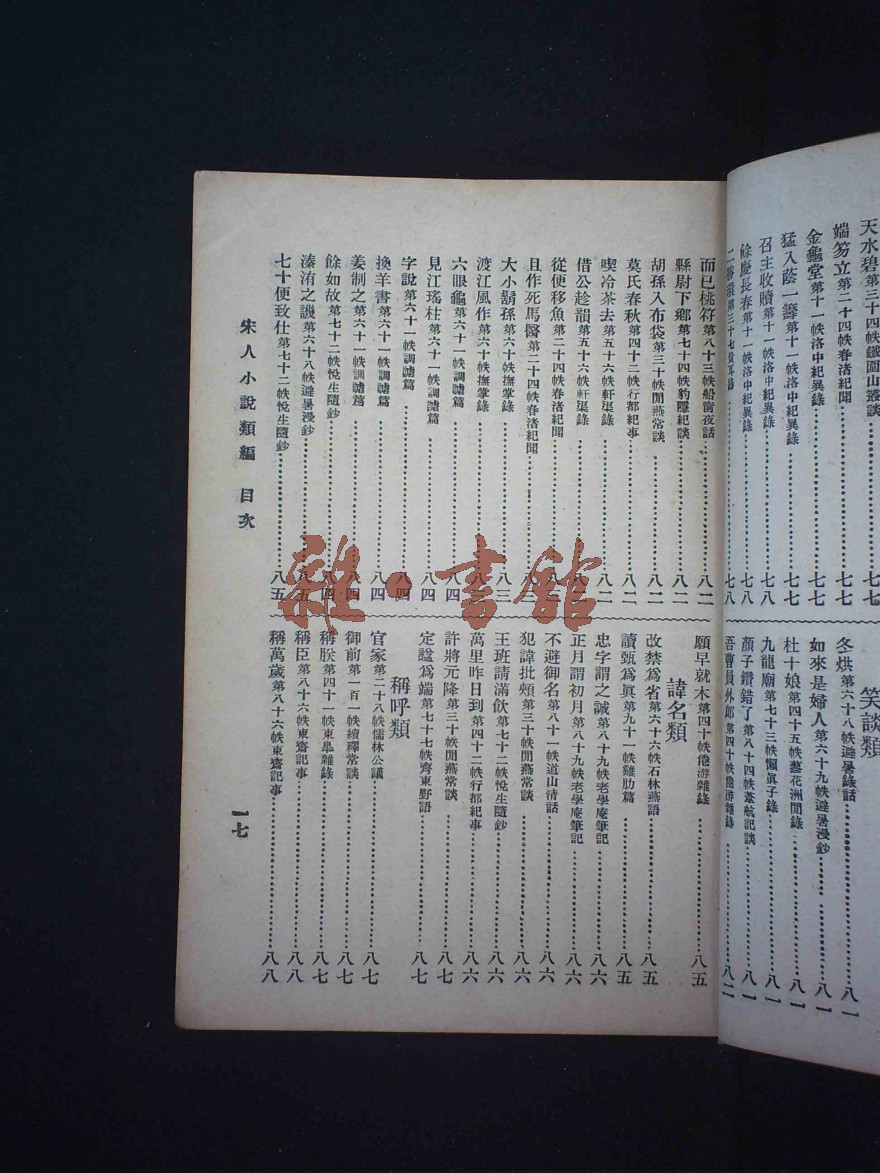 天水碧第三十四帙鐵圍山叢談……七七
端笏立第二十四帙春渚紀聞……七七
金龜堂第十一帙洛中紀異錄……七七
猛入蔭一籌第十一帙洛中紀異錄……七七
召主收贖第十一帙洛中紀異錄……七八
餘慶長春第十一帙洛中紀異錄……七八
第三十七帙貴耳錄……七八
笑談類
冬烘第六十八帙避暑錄話……八一
如來是婦人第六十九帙避暑漫鈔……八一
杜十娘第四十五帙藝花洲閒錄……八一
九龍廟第七十三帙懶眞子錄……八一
顏子鑽錯了第八十四帙葦航記談……八一
吾曹員外郎第四十帙倦游雜錄……八二
而已桃符第八十三帙船窗夜話……八二
縣尉下鄉第七十四帙豹隱紀談……八二
胡孫入布袋第三十帙閒燕常談……八二
莫氏春秋第四十二帙行都紀事……八二
喫冷茶去第五十六帙軒渠錄……八二
借公趁韻第五十六帙軒渠錄……八二
從便移魚第二十四帙春渚紀聞……八二
且作死馬醫第二十四帙春渚紀聞……八三
大小鬍孫第六十帙撫掌錄……八三
渡江風作第六十帙撫掌錄……八三
六眼龜第六十一帙調謔篇……八四
見江瑤柱第六十一帙調謔篇……八四
字說第六十一帙調謔篇……八四
換羊書第六十一帙調謔篇……八四
姜制之第六十一帙調謔篇……八四
餘如故第七十二帙悅生隨鈔……八四
溱洧之譏第六十八帙避暑漫鈔……八五
七十便致仕第七十二帙悅生隨鈔……八五
願早就木第四十帙倦游雜錄……八五
諱名類
改禁爲省第六十六帙石林燕語……八五
讀甄爲眞第九十一帙雞肋篇……八五
忠字謂之誠第八十九帙老學庵筆記……八六
正月謂初月第八十九帙老學庵筆記……八六
不避御名第八十一帙道山清話……八六
犯諱批頰第三十帙閒燕常談……八六
王班請滿飲第七十二帙悅生隨鈔……八六
萬里昨日到第四十二帙行都紀事……八六
許將元降第三十帙閒燕常談……八七
定諡爲端第七十七帙齊東野語……八七
稱呼類
官家第二十八帙儒林公議……八七
御前第一百一帙續釋常談……八七
稱朕第四十一帙東臯雜錄……八七
稱臣第八十六帙東齋記事……八八
稱萬歲第八十六帙東齋記事……八八
宋人小說類編 目次
一七
雜·書館